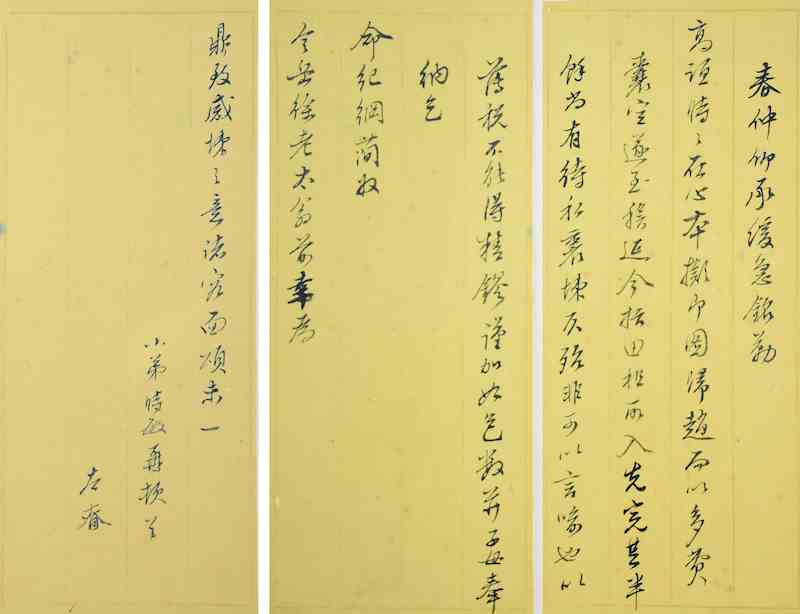 春仲仰承緩急銘勒
高誼時〻在心本擬即圖歸趙而以多費
囊空遂至稽延今括田租所入先完其半
餘尚有待私衷悚仄殆非可以言喻也以
薄税不能得精鏐謹加如色數并子母奉
納乞
命紀綱簡收
令岳徐老太翁前幸為
鼎致感悚之意諸容面頌未一
小弟時敏再頓首
左